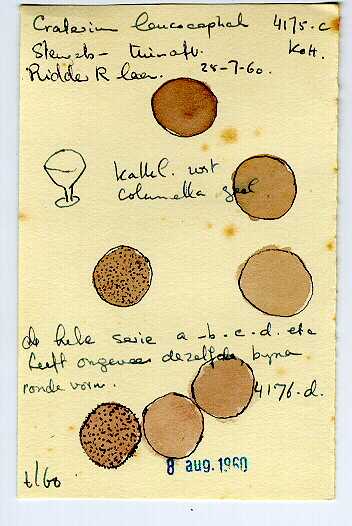 Craterium leucocephal 4175.c
Stengels- tuinafv. KoH.
Ridder R laan. 28-7-60.
kalkl. wit
columella geel
de hele serie a-b-c-d. etc
heeft ongeveer dezelfde, byna
ronde vorm.
4176-d.
8 aug. 1960
t/60